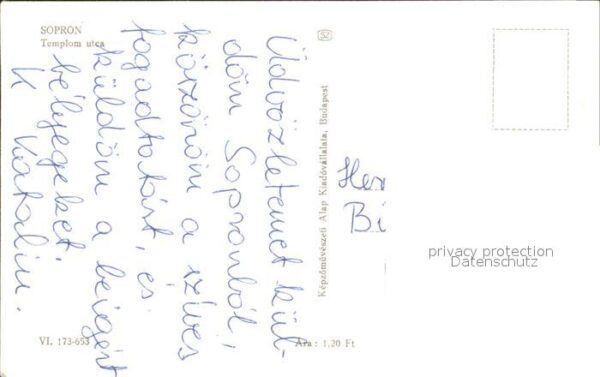 SOPRON
Templom utca
Üdvözletemet kül-
döm Sopronból,
köszönöm a szíves
fogadtatást, és
küldöm a beígért
bélyegeket.
K Katalin.
VI. 173-653
Képzőművészeti Alap Kiadóvállalata, Budapest
Ára: 1,20 Ft
Her
Bi
privacy protection
Datenschutz